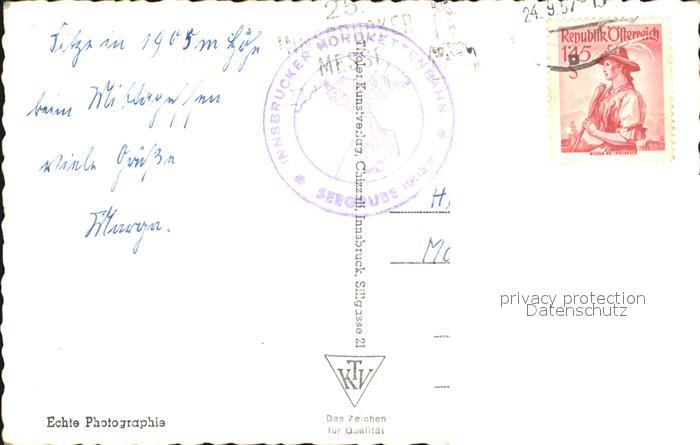 Sitze in 1905 m Höhe
beim Mittagessen
viele Grüße
Marga.
25.
INNSBRUCKER
MESSE
24.9.57
Republik Österreich
1.45
S
WILTEN BEI INNSBRUCK
INNSBRUCKER NORDKETTENBAHN
* SEEGRUBE 1905 m *
Tiroler Kunstverlag, Chizzali, Innsbruck, Sillgasse 21
H
Mo
privacy protection
Datenschutz
KTV
Das Zeichen
für Qualität
Echte Photographie